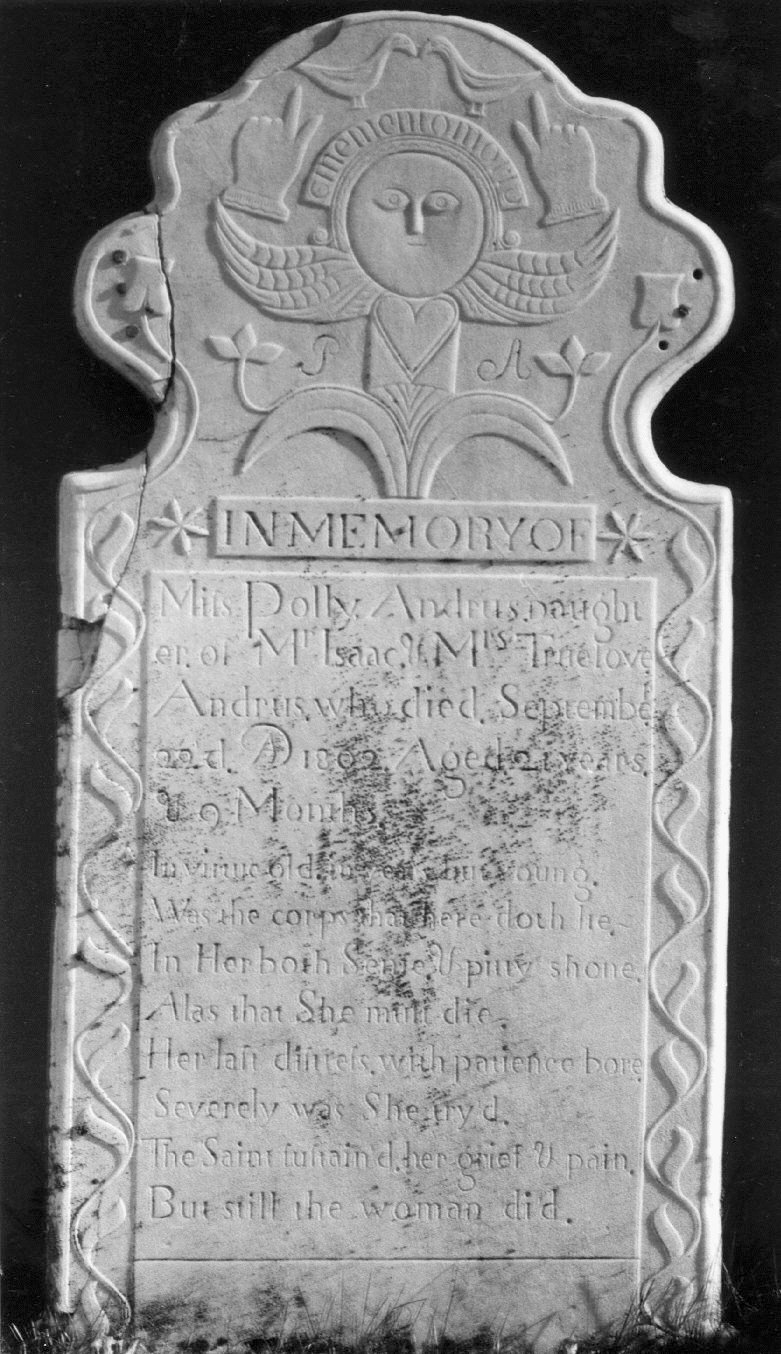 mementomori
P A
IN MEMORY OF
Miſs. Polly. Andrus. Daught
er. of Mr Isaac. & Mrs Truelove
Andrus. who. died. September
22d. AD 1802. Aged 21 years.
& 9 Months
In virtue old. in years but young.
Was the corps that here doth lie.
In Her both Sense & pitty shone.
Alas that She muſt die.
Her laſt diſtreſs. with patience bore
Severely was She try'd.
The Saint ſuſtain'd. her grief & pain.
But still the woman di'd.